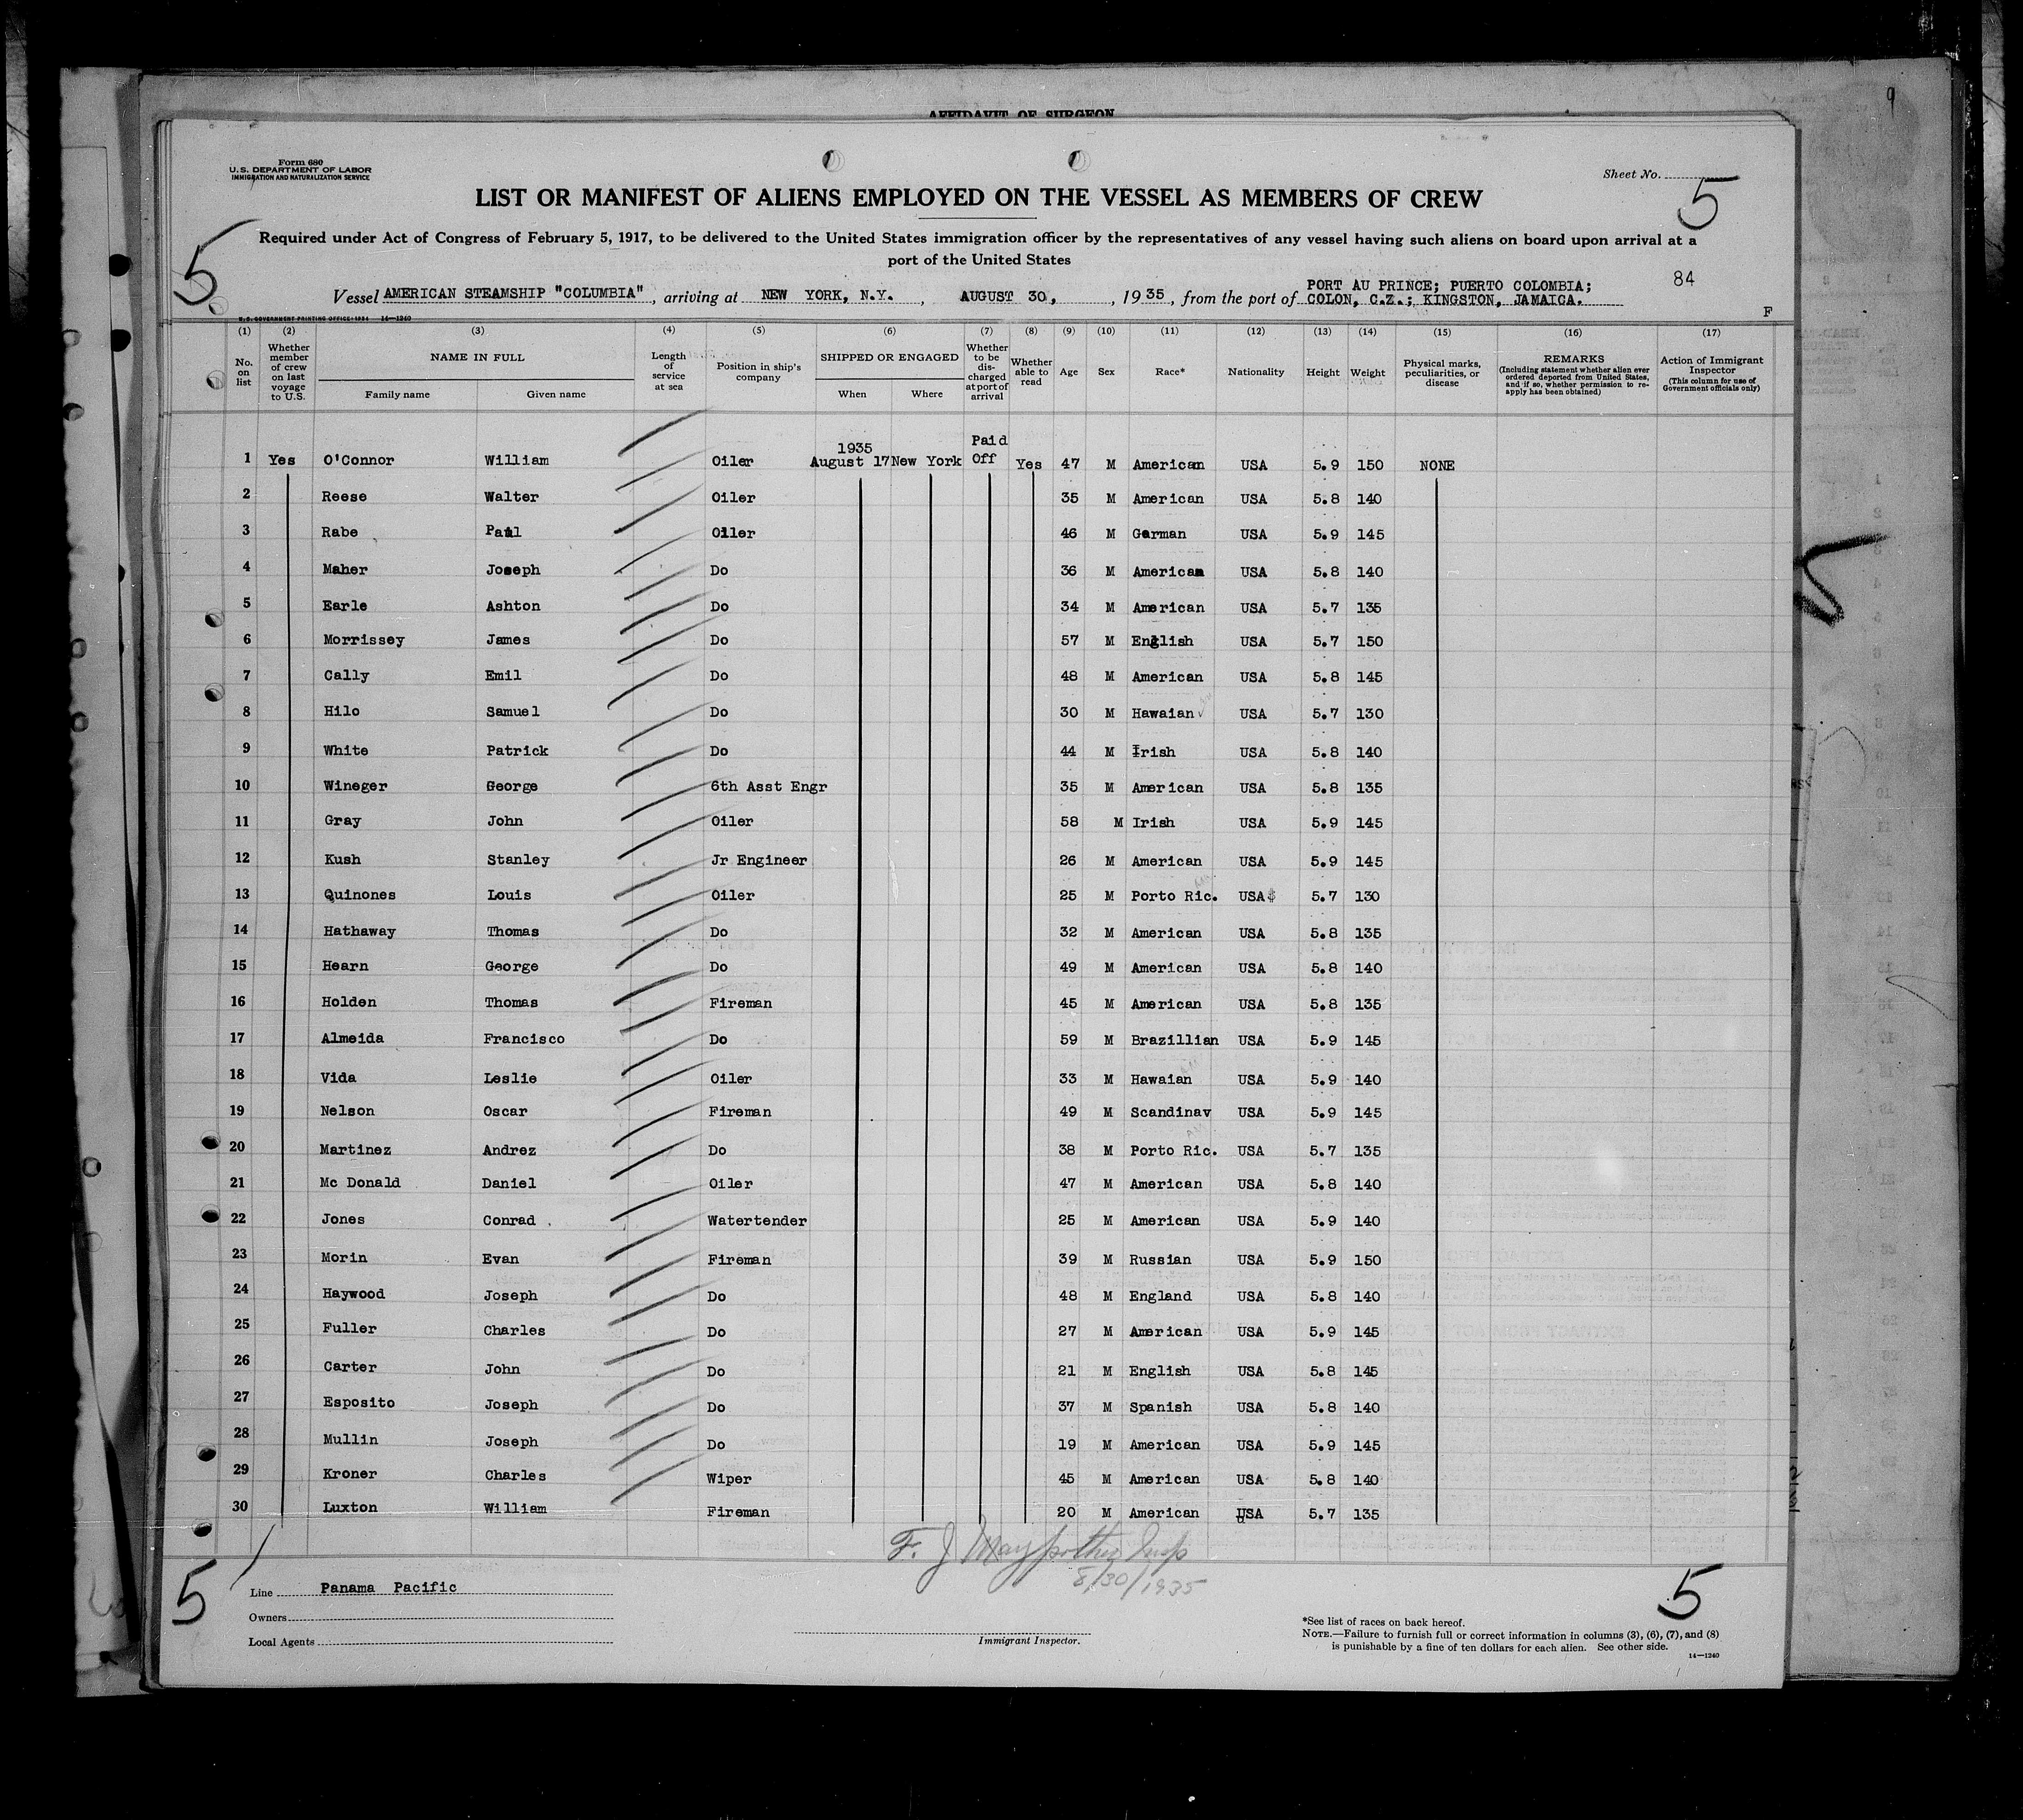 AFFIDAVIT OF SURGEON
9
Form 680
U.S. DEPARTMENT OF LABOR
IMMIGRATION AND NATURALIZATION SERVICE
Sheet No. 5
LIST OR MANIFEST OF ALIENS EMPLOYED ON THE VESSEL AS MEMBERS OF CREW
5
Required under Act of Congress of February 5, 1917, to be delivered to the United States immigration officer by the representatives of any vessel having such aliens on board upon arrival at a
port of the United States
84
Vessel AMERICAN STEAMSHIP "COLUMBIA", arriving at NEW YORK, N.Y., AUGUST 30, , 1935, from the port of PORT AU PRINCE; PUERTO COLOMBIA;
COLON, C.Z.; KINGSTON, JAMAICA.
F
U.S. GOVERNMENT PRINTING OFFICE: 1934 14—1240
(1) (2) (3) (4) (5) (6) (7) (8) (9) (10) (11) (12) (13) (14) (15) (16) (17)
No. on list
Whether member of crew on last voyage to U.S.
NAME IN FULL
Family name Given name
Length of service at sea
Position in ship's company
SHIPPED OR ENGAGED
When Where
Whether to be discharged at port of arrival
Whether able to read
Age
Sex
Race*
Nationality
Height
Weight
Physical marks, peculiarities, or disease
REMARKS
(Including statement whether alien ever ordered deported from United States, and if so, whether permission to re-apply has been obtained)
Action of Immigrant Inspector
(This column for use of Government officials only)
1 Yes O'Connor William Oiler 1935 August 17 New York Paid Off Yes 47 M American USA 5.9 150 NONE
2 Reese Walter Oiler 35 M American USA 5.8 140
3 Rabe Paul Oiler 46 M German USA 5.9 145
4 Maher Joseph Do 36 M American USA 5.8 140
5 Earle Ashton Do 34 M American USA 5.7 135
6 Morrissey James Do 57 M English USA 5.7 150
7 Cally Emil Do 48 M American USA 5.8 145
8 Hilo Samuel Do 30 M Hawaian USA 5.7 130
9 White Patrick Do 44 M Irish USA 5.8 140
10 Wineger George 6th Asst Engr 35 M American USA 5.8 135
11 Gray John Oiler 58 M Irish USA 5.9 145
12 Kush Stanley Jr Engineer 26 M American USA 5.9 145
13 Quinones Louis Oiler 25 M Porto Ric. USA 5.7 130
14 Hathaway Thomas Do 32 M American USA 5.8 135
15 Hearn George Do 49 M American USA 5.8 140
16 Holden Thomas Fireman 45 M American USA 5.8 135
17 Almeida Francisco Do 59 M Brazillian USA 5.9 145
18 Vida Leslie Oiler 33 M Hawaian USA 5.9 140
19 Nelson Oscar Fireman 49 M Scandinav USA 5.9 145
20 Martinez Andrez Do 38 M Porto Ric. USA 5.7 135
21 Mc Donald Daniel Oiler 47 M American USA 5.8 140
22 Jones Conrad Watertender 25 M American USA 5.9 140
23 Morin Evan Fireman 39 M Russian USA 5.9 150
24 Haywood Joseph Do 48 M England USA 5.8 140
25 Fuller Charles Do 27 M American USA 5.9 145
26 Carter John Do 21 M English USA 5.8 145
27 Esposito Joseph Do 37 M Spanish USA 5.8 140
28 Mullin Joseph Do 19 M American USA 5.9 145
29 Kroner Charles Wiper 45 M American USA 5.8 140
30 Luxton William Fireman 20 M American USA 5.7 135
F. J Maypother Insp
8/30/1935
5
5
Line Panama Pacific
Owners
Local Agents
Immigrant Inspector.
*See list of races on back hereof.
NOTE.—Failure to furnish full or correct information in columns (3), (6), (7), and (8)
is punishable by a fine of ten dollars for each alien. See other side.
14—1240